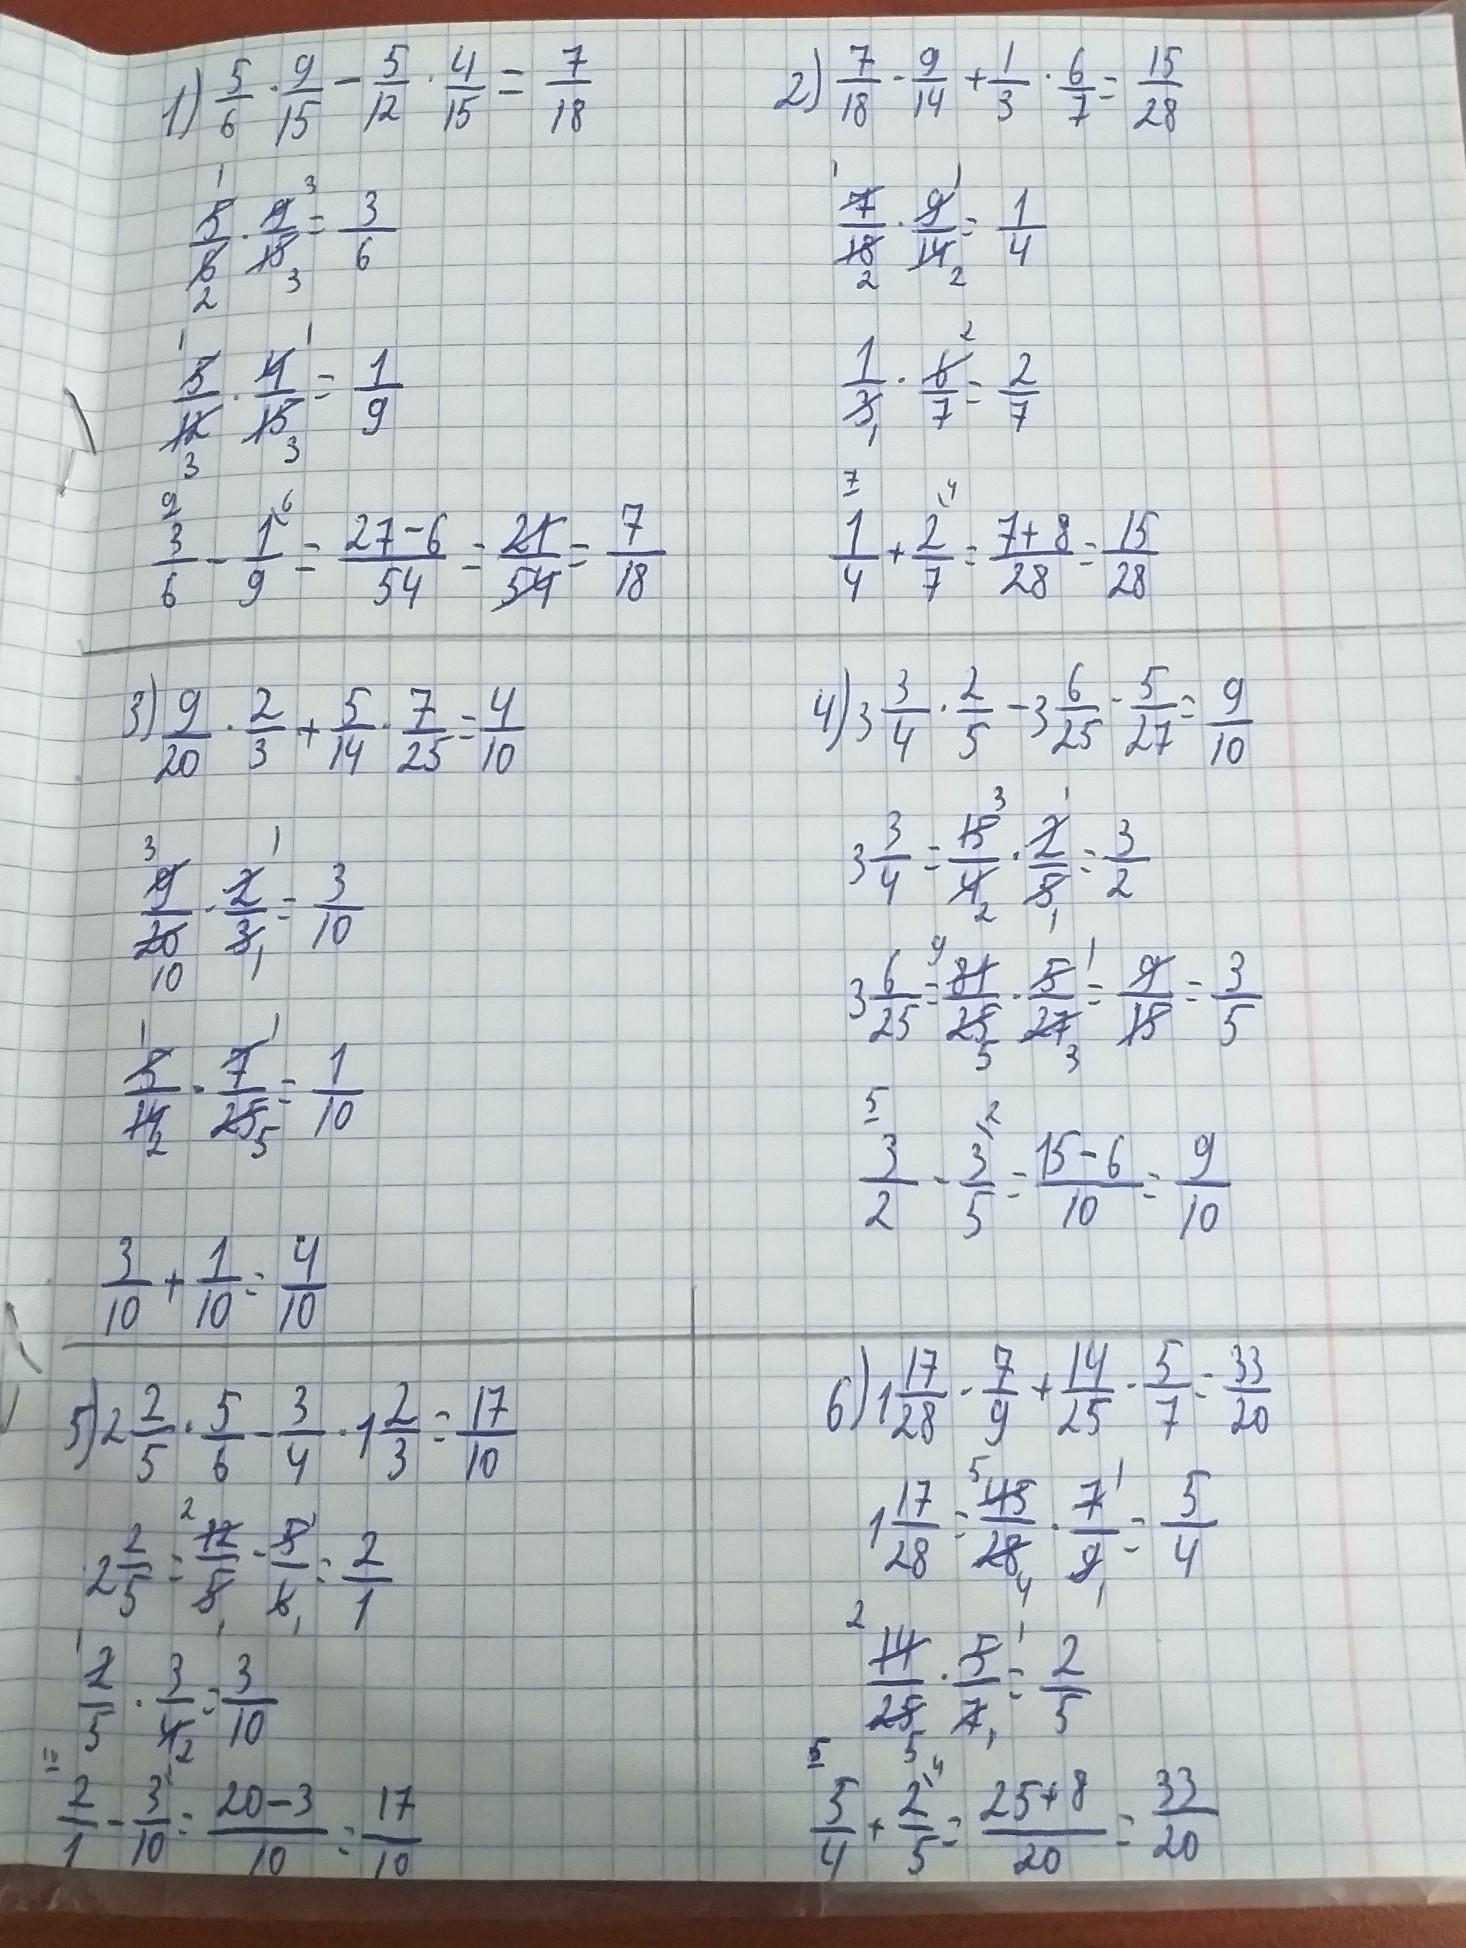 1) 5/6 · 9/15 - 5/12 · 4/15 = 7/18
5/6 · 9/15 = 3/6
1 3
2 3
5/12 · 4/15 = 1/9
1 1
3 3
3/6 - 1/9 = (27-6)/54 = 21/54 = 7/18
9 6
2) 7/18 · 9/14 + 1/3 · 6/7 = 15/28
7/18 · 9/14 = 1/4
1 1
2 2
1/3 · 6/7 = 2/7
2
1
1/4 + 2/7 = (7+8)/28 = 15/28
7 4
3) 9/20 · 2/3 + 5/14 · 7/25 = 4/10
9/20 · 2/3 = 3/10
3 1
10 1
5/14 · 7/25 = 1/10
1 1
2 5
3/10 + 1/10 = 4/10
4) 3 3/4 · 2/5 - 3 6/25 · 5/27 = 9/10
3 3/4 = 15/4 · 2/5 = 3/2
3 1
2 1
3 6/25 = 81/25 · 5/27 = 9/15 = 3/5
9 1
5 3
3/2 - 3/5 = (15-6)/10 = 9/10
5 2
5) 2 2/5 · 5/6 - 3/4 · 1 2/3 = 17/10
2 2/5 = 12/5 · 5/6 = 2/1
2 1
1 1
2/5 · 3/4 = 3/10
1
2
2/1 - 3/10 = (20-3)/10 = 17/10
10 1
6) 1 17/28 · 7/9 + 14/25 · 5/7 = 33/20
1 17/28 = 45/28 · 7/9 = 5/4
5 1
4 1
14/25 · 5/7 = 2/5
2 1
5 1
5/4 + 2/5 = (25+8)/20 = 33/20
5 4